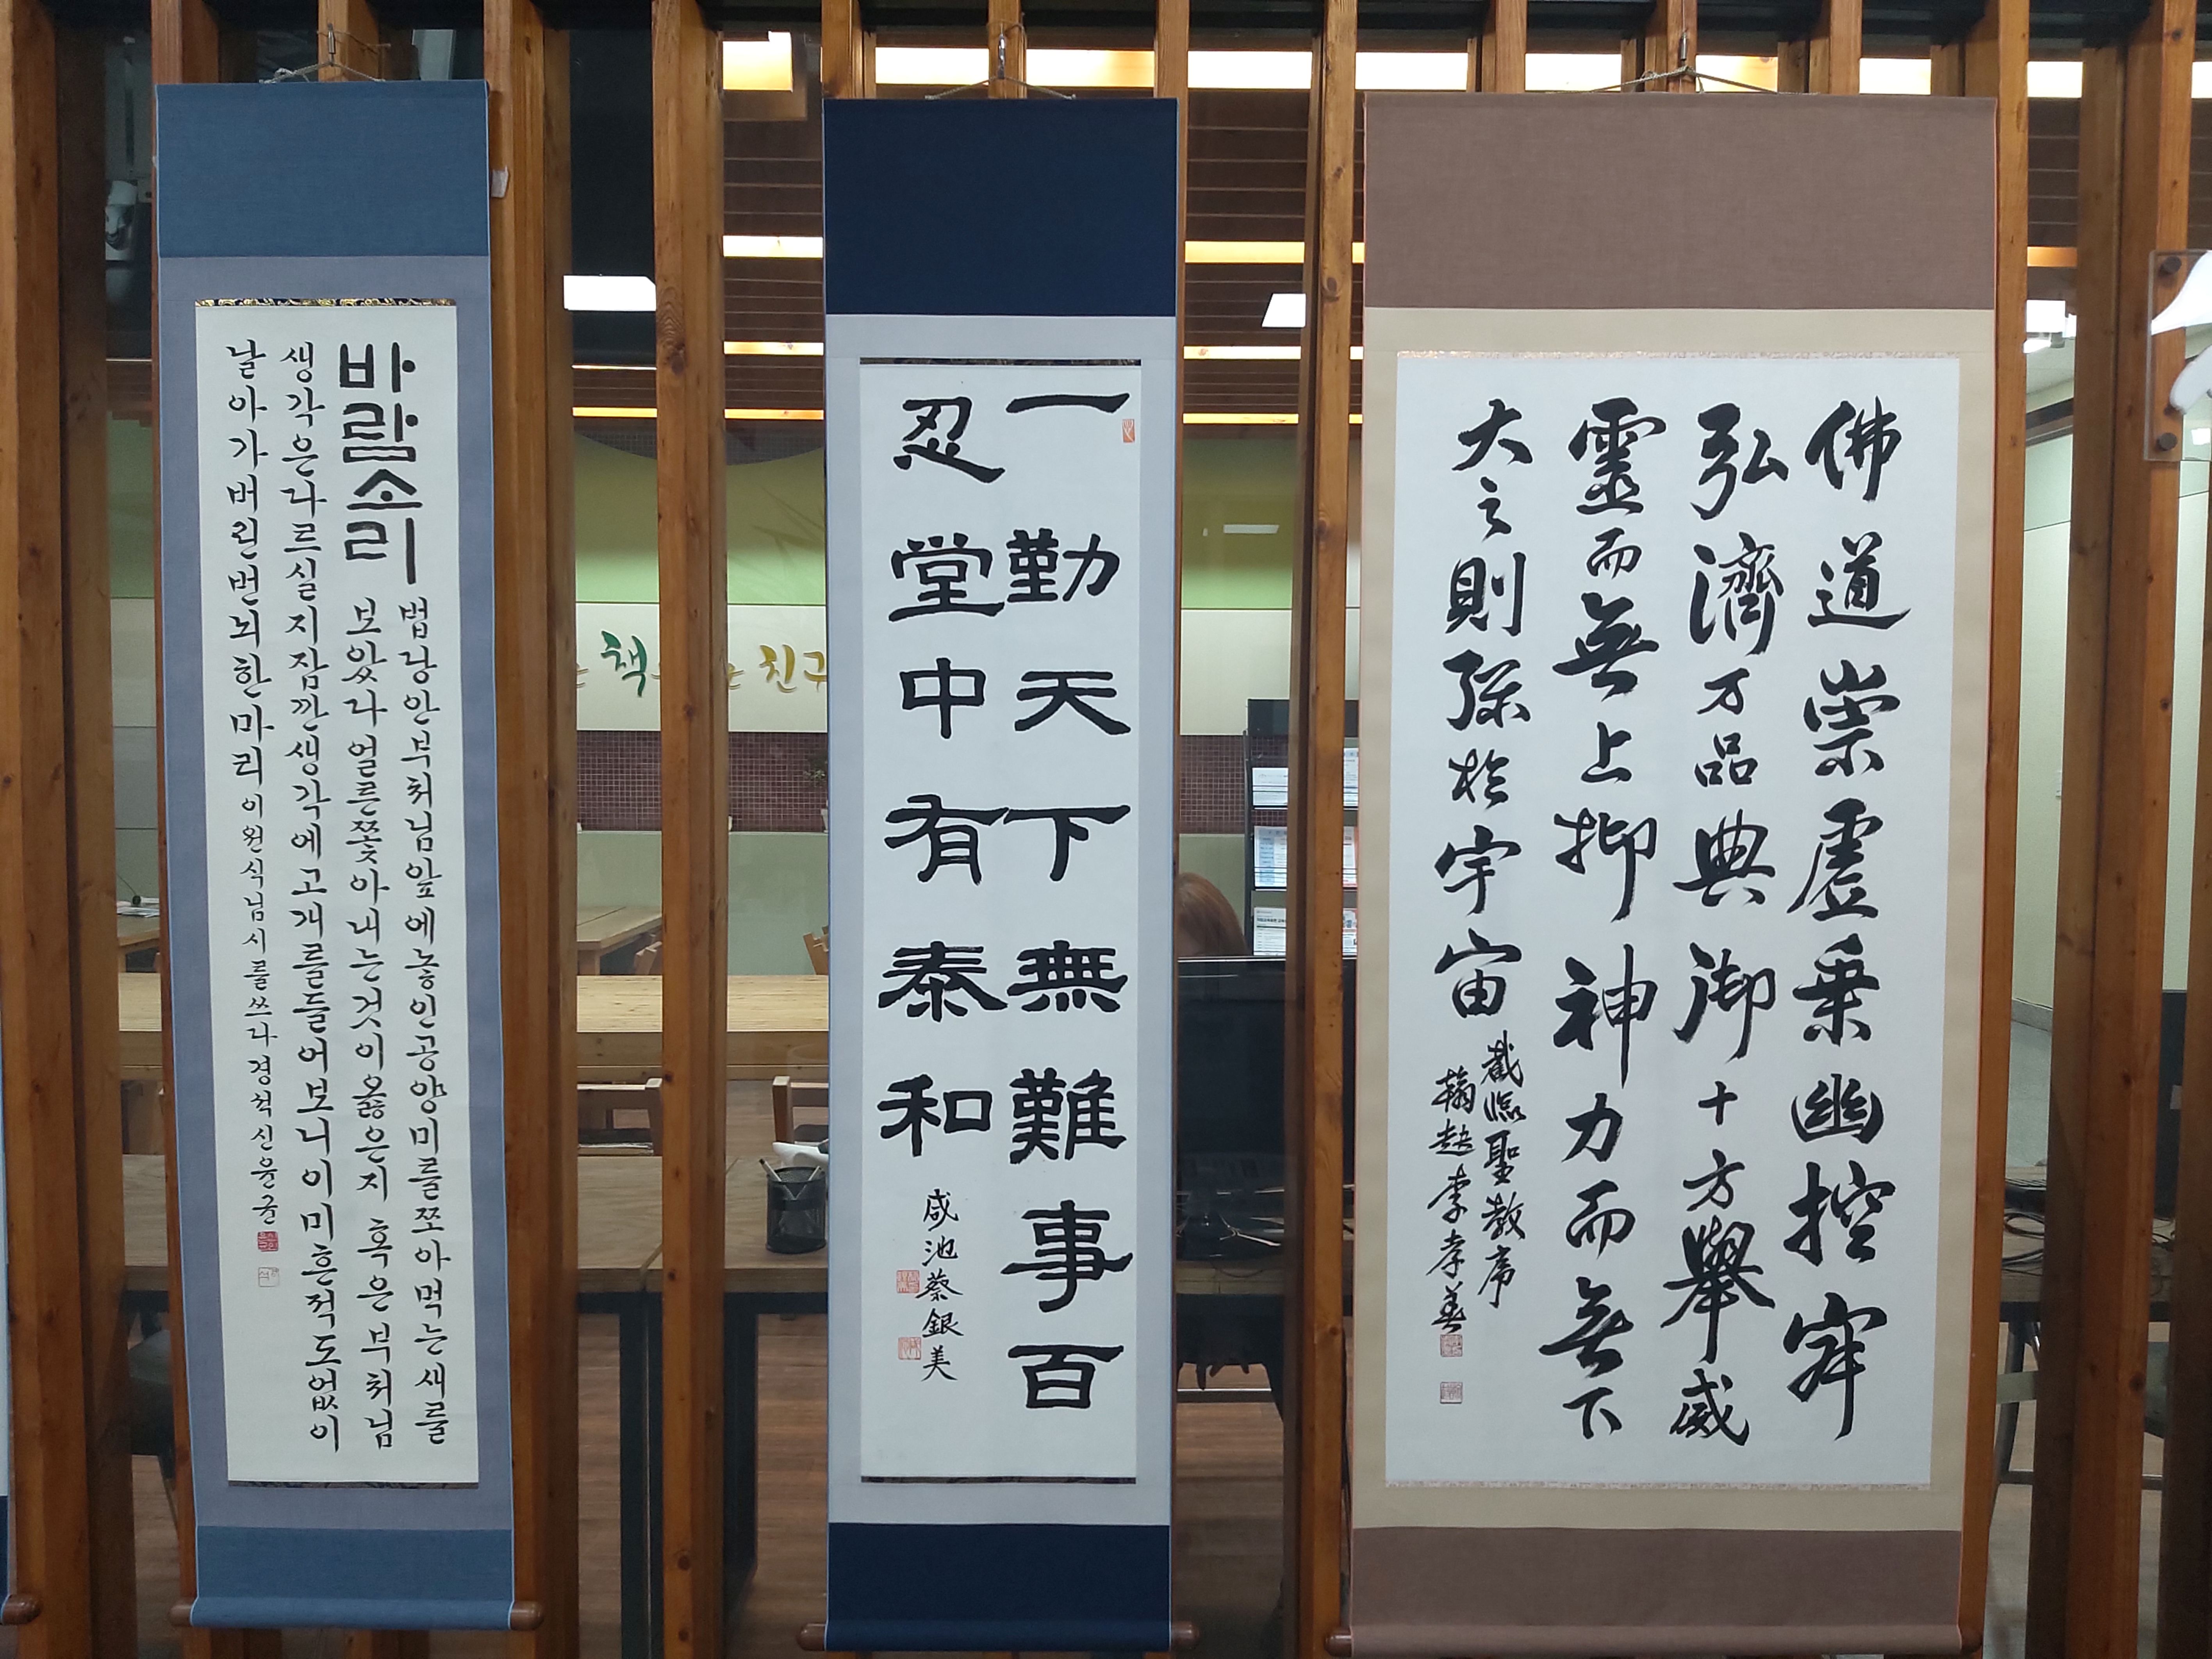 바람소리
법당안부처님앞에놓인공양미를쪼아먹는새를
보았다얼른쫓아내는것이옳은지 혹은부처님
생각은다르실지잠깐생각에고개를들어보니이미흔적도없이
날아가버린번뇌한마리 이원식님시를쓰다 경석
一勤天下無難事百
忍堂中有泰和
咸池蔡銀美
佛道崇虛乘幽控寂
弘濟万品典御十方擧威
靈而無上抑神力而無下
大之則彌於宇宙
截臨聖教序
李孝
책 친구